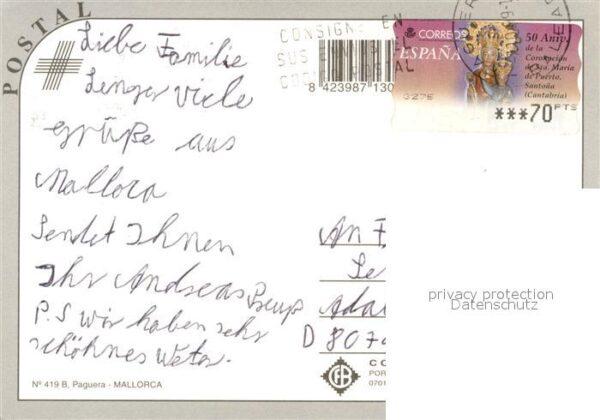 POSTAL
Liebe Familie
viele
grüße aus
Mallorca
Sendet Ihnen
Ihr Andreas
P.S wir haben sehr
schöhnes Weter.
Nº 419 B, Paguera - MALLORCA
CONSIGNE EN
SUS
POSTAL
8 423987 130
CORREOS
ESPAÑA
50 Aniv.
de la
Coronación
de Sta. María
de Puerto.
Santoña
(Cantabria)
***70 PTS
An F
Adam
D 807
privacy protection
Datenschutz
CO
POR
0701